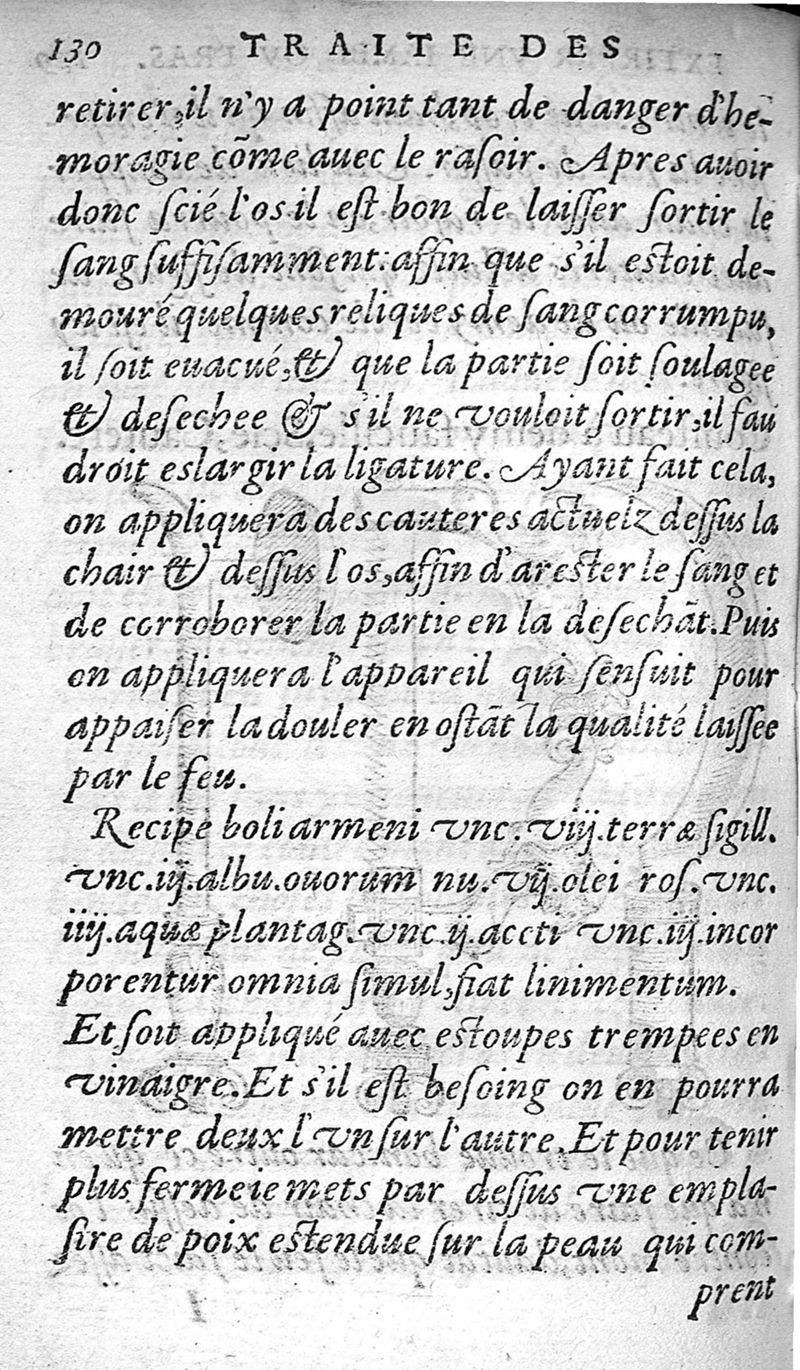 130 TRAITE DES
retirer,il n'y a point tant de danger d'he-
moragie cõme auec le raſoir. Apres auoir
donc ſcié l'os il eſt bon de laiſſer ſortir le
ſang ſuffiſamment: affin que s'il eſtoit de-
mouré quelques reliques de ſang corrumpu,
il ſoit euacué, & que la partie ſoit ſoulagee
& deſechee & s'il ne vouloit ſortir,il fau
droit eslargir la ligature. Ayant fait cela,
on appliquera des cauteres actuelz deſſus la
chair & deſſus l'os,affin d'areſter le ſang et
de corroborer la partie en la deſechãt.Puis
on appliquera l'appareil qui ſenſuit pour
appaiſer la douler en oſtãt la qualité laiſſee
par le feu.
Recipe boli armeni vnc. viij.terræ ſigill.
vnc.iij.albu.ouorum nu.vij.olei roſ.vnc.
iiij.aquæ plantag.vnc.ij.aceti vnc.iij.incor
porentur omnia ſimul,fiat linimentum.
Et ſoit appliqué auec eſtoupes trempees en
vinaigre.Et s'il eſt beſoing on en pourra
mettre deux l'vn ſur l'autre.Et pour tenir
plus ferme ie mets par deſſus vne empla-
ſtre de poix eſtendue ſur la peau qui com-
prent